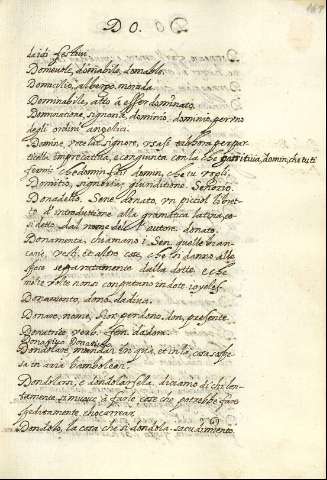 DO.
da i di festivi.
Domevole, domabile, domable.
Domicilio, albergo, morada.
Dominabile, atto à esser dominato.
Dominatione, signoria, dominio, dominio, per uno
degli ordini angelici.
Domine, voce lat. signore, usasi talhora per par-
ticella imprecativa, e congiunta con la che
fermi che domin fai domin, che tu vogli.
Dominio, signoria, giuriditione. Señorio.
Donadello. Sene. Donato, un picciol libret-
to d'introductione alla gramatica latina, co-
si detto dal nome del autore. donato.
Donamenta, chiamano i Sen. quelle bian-
carie, vesti, et altre cose, che si danno alle
spose separatamente dalla dotte, e che
molte volte non si computano in dote. joyeles.
Donamento, dono. dadiva.
Donare, nome, Per perdono, don, presente.
Donatrice, verb. fem. dadora.
Donativo Donativo
Dondolare, mandar in quà, et in là, cosa sospe-
sa in aria. bambolear.
Dondolarsi, e dondolarsela, diciamo di chi len-
tamente si muove à farlo, cose che potrebbe fare
speditamente, chocarrear.
Dondolo, la cosa che si dondola. sacudimento.